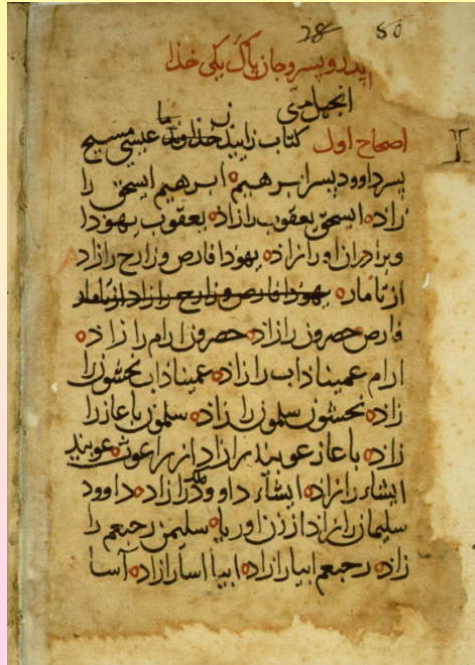 28 50
ایدر و پسر و جان پاک یکی خذا
انجیل متی
اصحاح اول کتاب زایید خذاوند ما عیسی مسیح
پسر داوود پسر ابرهیم ابرهیم ایسحق را
زاد ایسحق یعقوب را زاد یعقوب یهودا
و برادران او را زاد یهودا فارص و زارح را زاد
از تامار یهودا فارص و زارح را زاد از تامار
فارص حصرون را زاد حصرون ارام را زاد
ارام عمیناداب را زاد عمیناداب نحشون را
زاد نحشون سلمون را زاد سلمون باعاز را
زاد باعاز عوبید را زاد از راعوث عوبید
ایشاء را زاد ایشاء داوود ملک را زاد داوود
سلیمان را زاد از زن اوریا سلیمن رحبعم را
زاد رحبعم ابیا را زاد ابیا اسا را زاد آسا